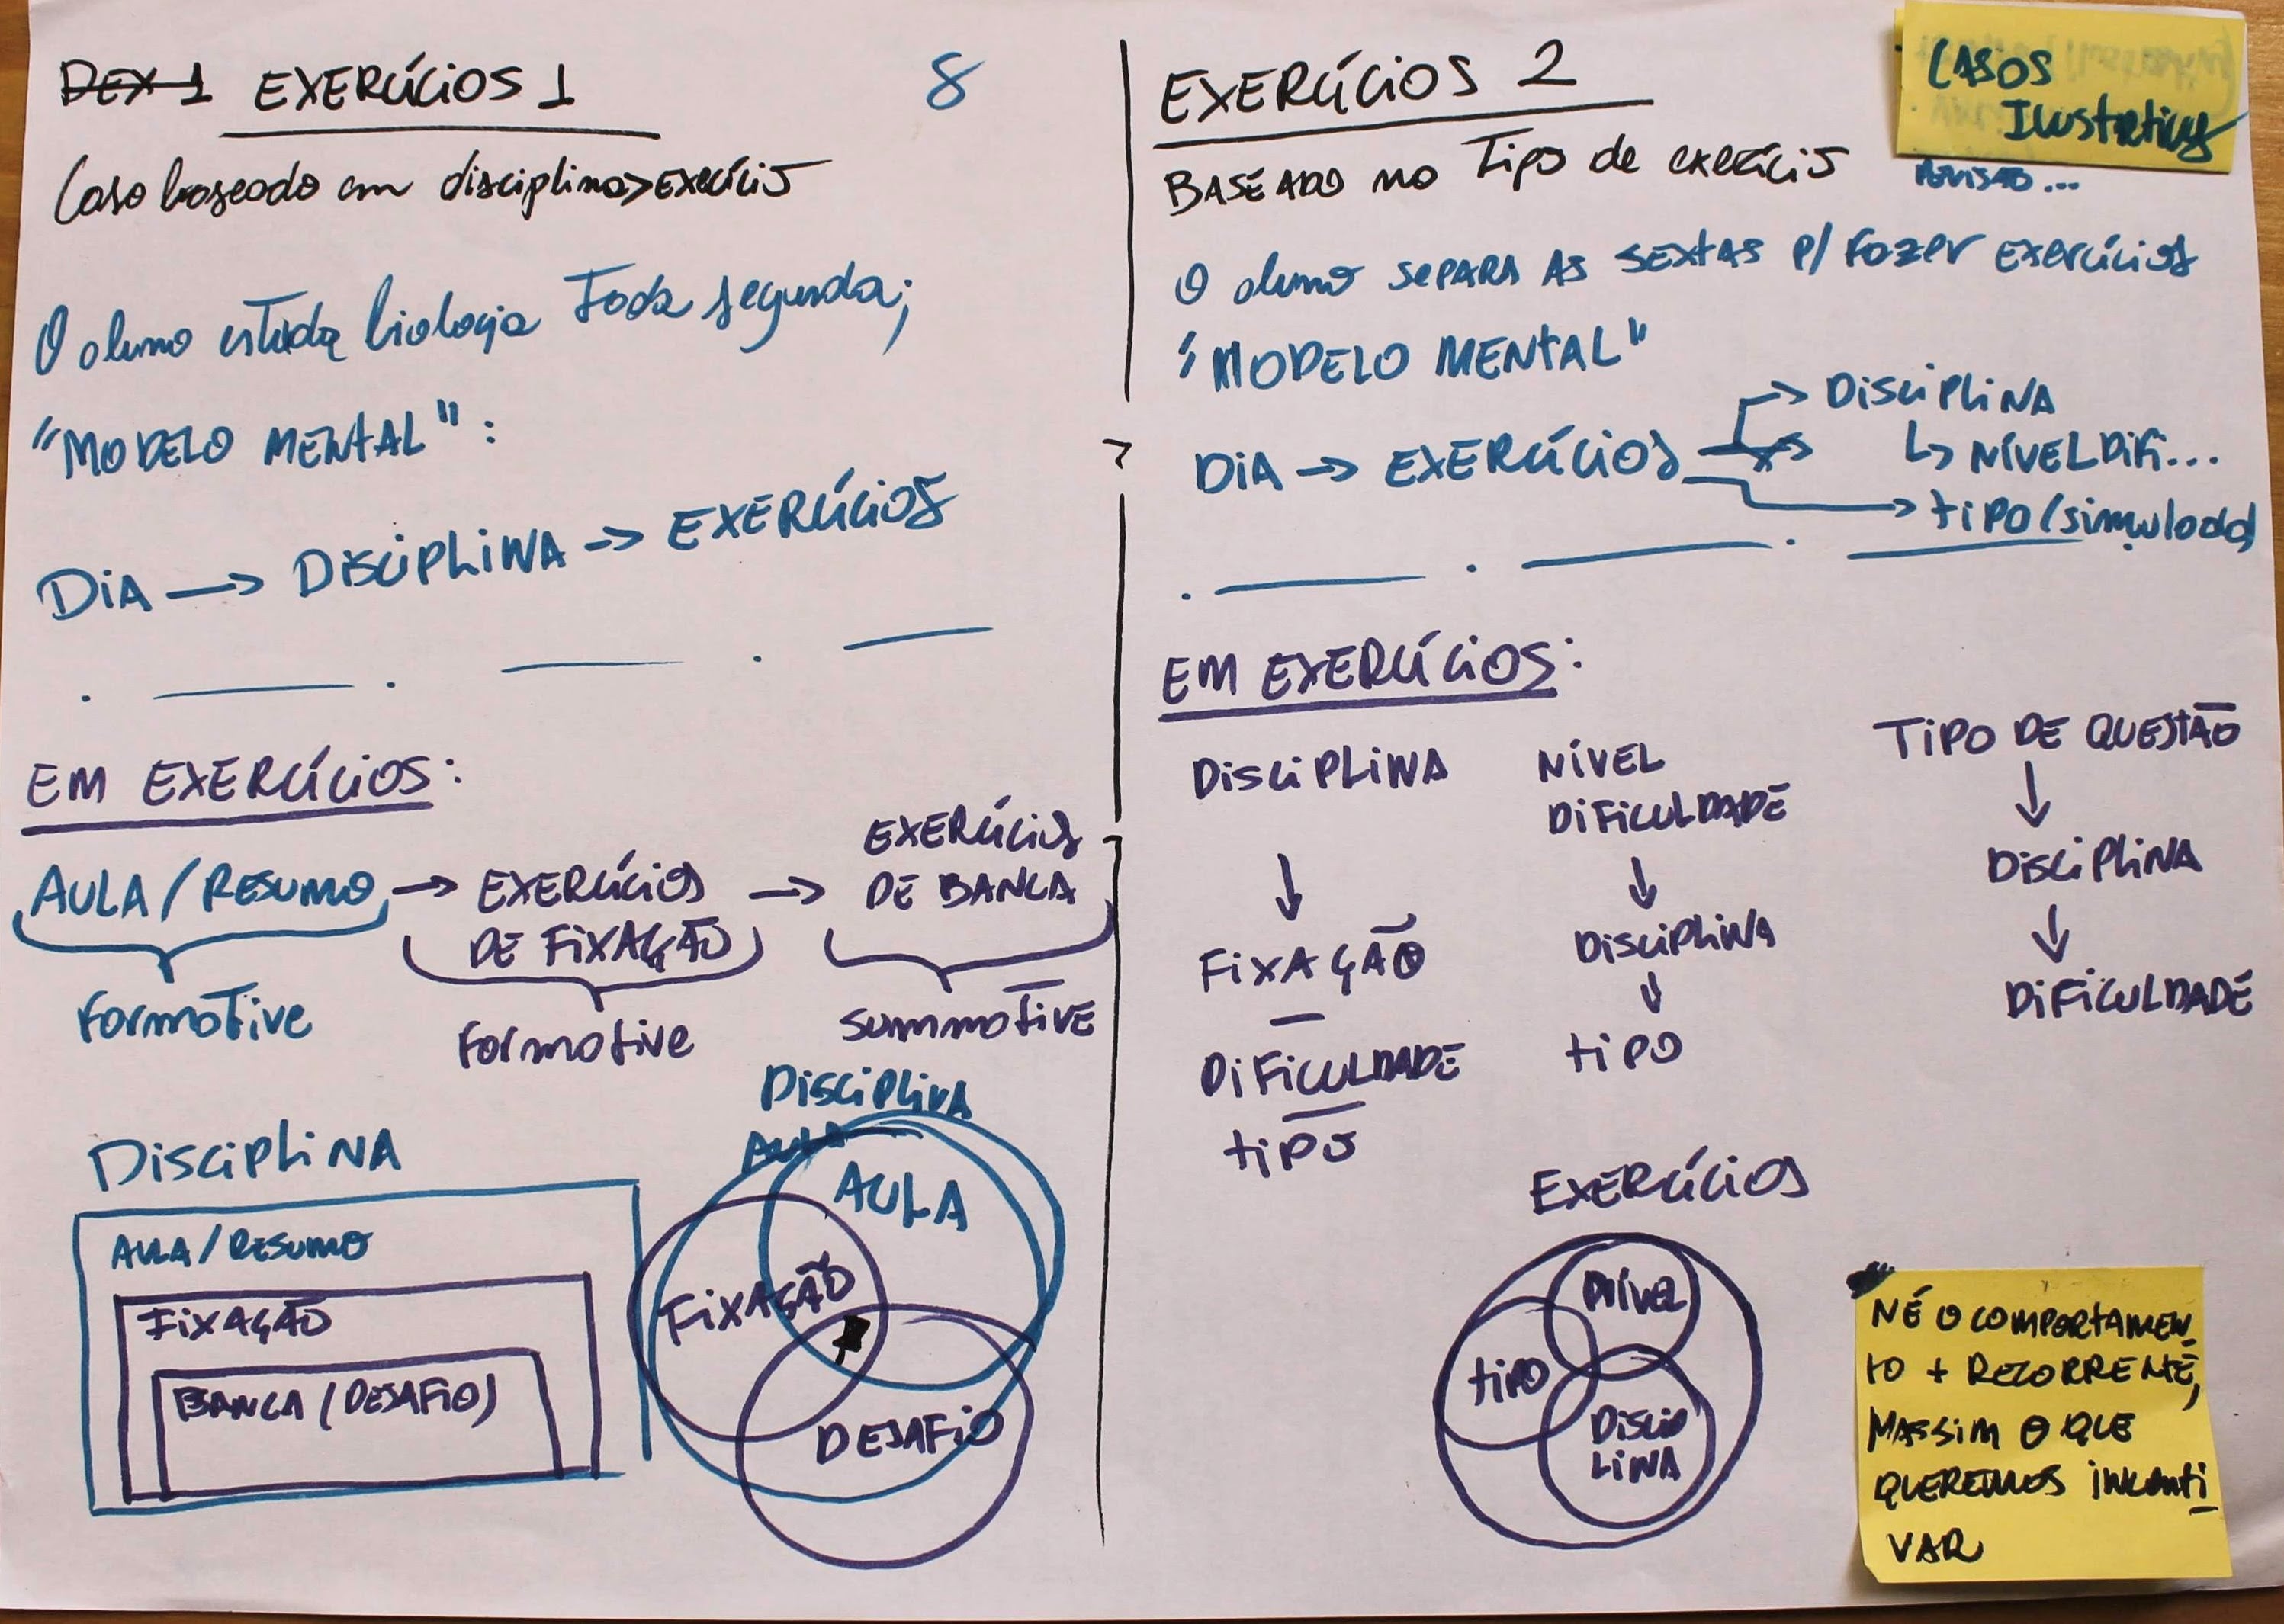 DEX-1 EXERCÍCIOS 1
8
Caso baseado em disciplina>exercício
O aluno estuda biologia toda segunda;
"MODELO MENTAL":
DIA → DISCIPLINA → EXERCÍCIOS
EM EXERCÍCIOS:
AULA/RESUMO → EXERCÍCIOS
DE FIXAÇÃO →
EXERCÍCIOS
DE BANCA
formative
formative
summative
DISCIPLINA
AULA/RESUMO
FIXAÇÃO
BANCA (DESAFIO)
DISCIPLINA
AULA
AULA
FIXAÇÃO
DESAFIO
EXERCÍCIOS 2
BASEADO no Tipo de exercício
O aluno SEPARA AS SEXTAS P/ FAZER EXERCÍCIOS
"MODELO MENTAL"
DIA → EXERCÍCIOS
→ DISCIPLINA
↳ NÍVEL DIFI...
→ TIPO (simulado)
EM EXERCÍCIOS:
DISCIPLINA
↓
FIXAÇÃO
DIFICULDADE
TIPO
NÍVEL
DIFICULDADE
↓
DISCIPLINA
↓
TIPO
TIPO DE QUESTÃO
↓
DISCIPLINA
↓
DIFICULDADE
EXERCÍCIOS
NÍVEL
TIPO
DISCIP
LINA
CASOS
ILUSTRATIVOS
NÉ O COMPORTAMEN
TO + RECORRENTE,
MAS SIM O QUE
QUEREMOS INCENTI
VAR